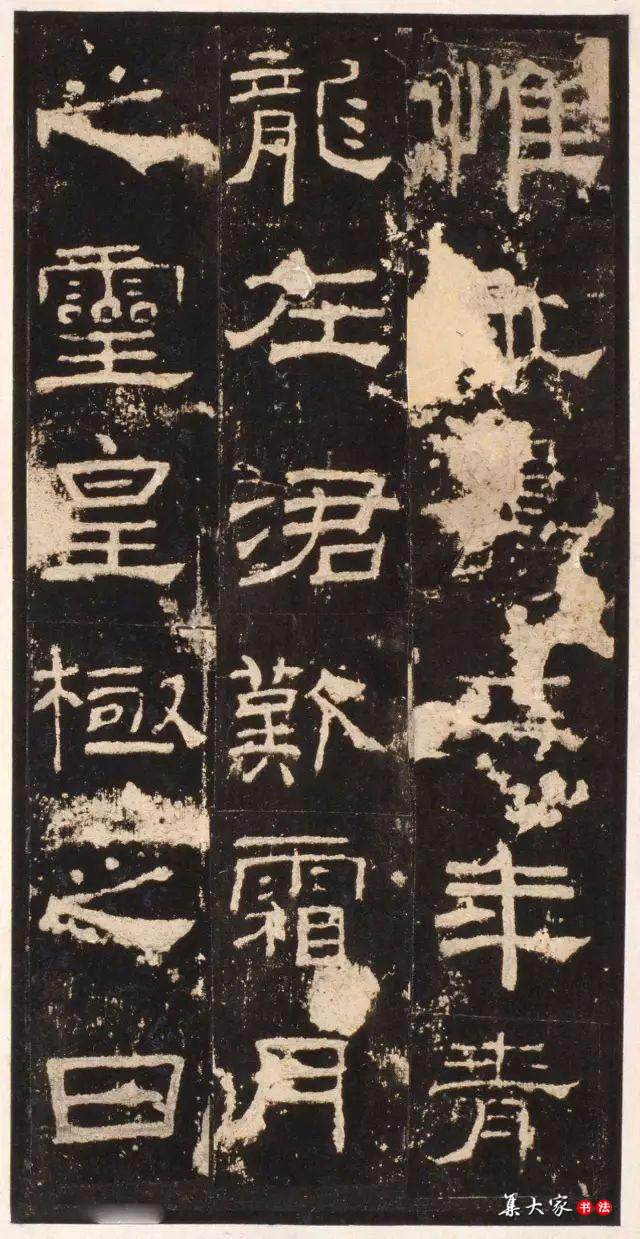 惟年青
龍在涒歎霜月
之靈皇極之日
集大家书法